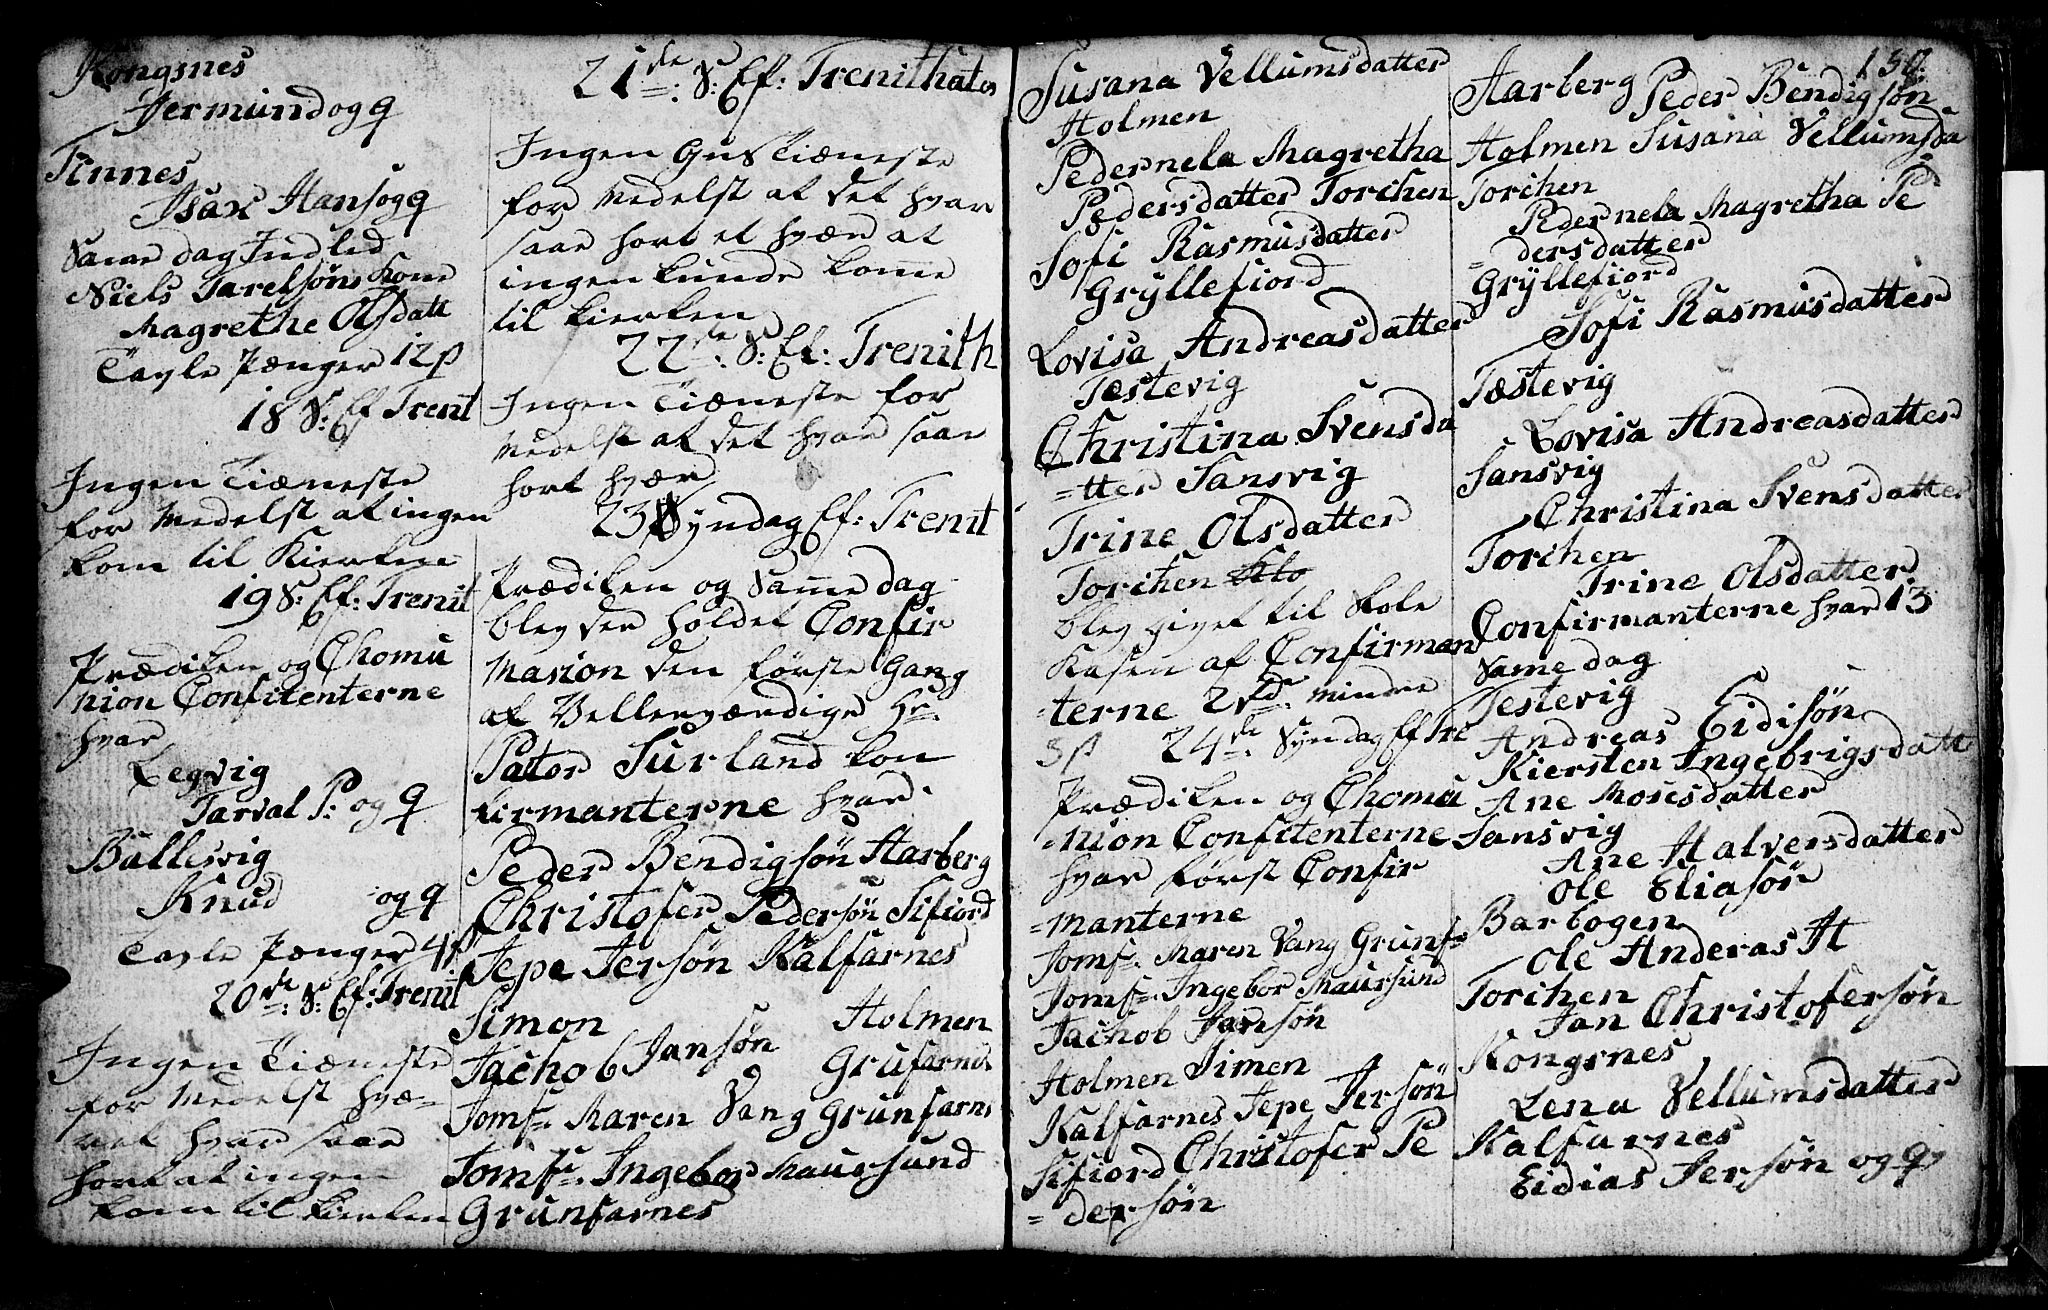 Kongsnes
Jermund og q
Finnes
Isax Hans og q
Same dag Indled
Niels Tarelsøns Kone
Magrethe Olsdatt
Tavle Pænger 12 β
18 S: Ef Trenit
Ingen Tiæneste
for Medelst at ingen
kom til Kierken
19 S: Ef: Trenit
Prædiken og Chomu
nion Confitenterne
hvar
Legvig
Tarval P: og q
Ballesvig
Knud og q
Tavle Pænger 4 β
20de S: Ef: Trenit
Ingen Tiæneste
for Medelst hvæ=
ret hvar saar
hort at ingen
kom til kierken
21de S: Ef: Trenithates
Ingen Gus Tiæneste
for Medelst at det hvar
saar hort et hvær at
ingen kunde kome
til kierken
22de S: Ef: Trenith
Ingen Tiæneste for
Medelst at det hvar saar
hort hvær
23 Syndag Ef: Trenit
Prædiken og Same dag
blev der holdet Confir
masion den første Gang
af Velleerværdige He=
Pator Jurland kon
firmanterne hvar
Peder Bendigsøn Aarberg
Christofer Pedersøn Sifiord
Jepe Jersøn Kalfarnes
Simon Holmen
Jachob Jansøn Grufarnes
Jomf: Maren Vang Grunfarns
Jomf: Ingebor Maursund
Grunfarnes
Susana Vellumsdatter
Holmen
Pedernela Magretha
Pedersdatter Torchen
Sofi Rasmusdatter
Gryllefiord
Lovisa Andreasdatter
Tæstevig
Christina Svensda
=tter Sansvig
Trine Olsdatter
Torchen
blev givet til Skole
Kasen af Confirman
=terne 2rd mindre
3 β 24de Syndag Ef Tre
Prædiken og Chomu
=nion Confitenterne
hvar først Confir
=manterne
Jomf: Maren Vang Grunf
Jomf: Ingebor Maursund
Jachob Jansøn
Holmen Simen
Kalfarnes Jepe Jersøn
Sifiord Christofer Pe
=dersøn
150
Aarberg Peder Bendigsøn
Holmen Susana Vellumsda
Torchen
Pedernela Magretha Pe
=dersdatter
Gryllefiord
Sofi Rasmusdatter
Tæstevig
Lovisa Andreasdatter
Sansvig
Christina Svensdatter
Torchen
Trine Olsdatter
Confirmanterne hvar 13
Same dag
Testevig
Andreas Eidisøn
Kiersten Ingebrigsdatt
Ane Mosesdatter
Sansvig
Ane Halversdatter
Ole Eliasøn
Barbogen
Ole Anderas H
Torchen
Jan Christofersøn
Kongsnes
Lena Vellumsdatter
Kalfarnes
Eidias Jersøn og q